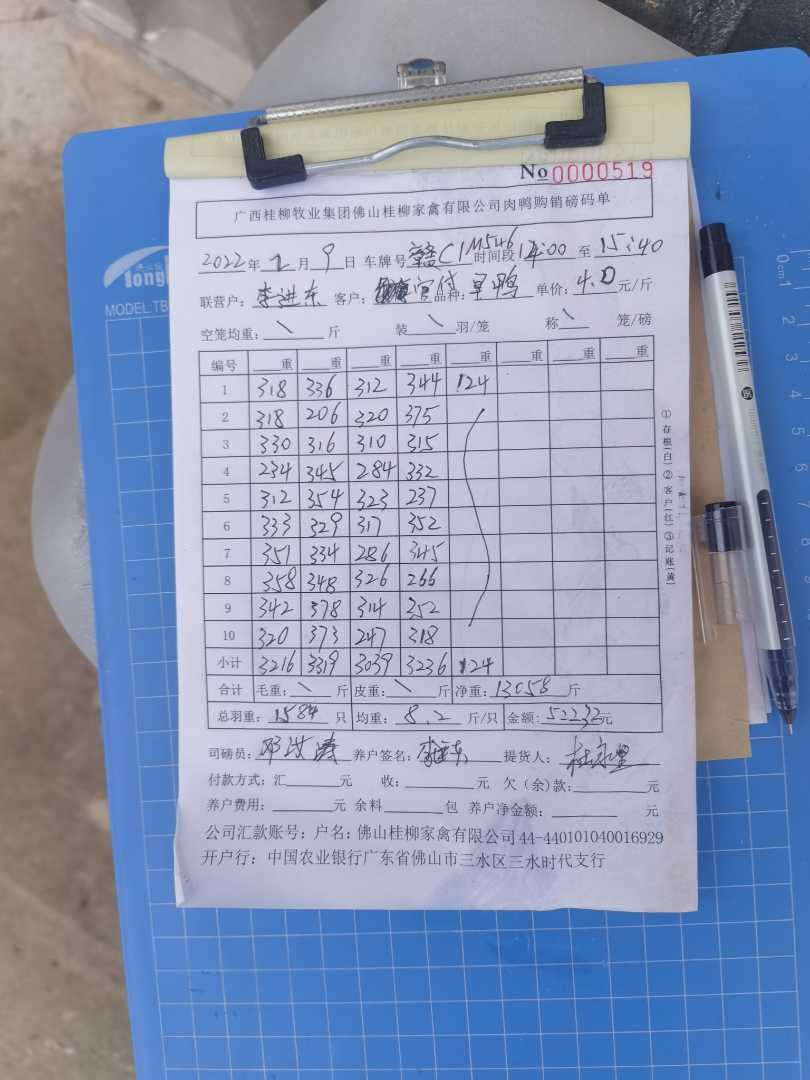 №0000519
广西桂柳牧业集团佛山桂柳家禽有限公司肉鸭购销磅码单
2022年 2月 9日 车牌号 赣C1M546 时间段 14:00 至 15:40
联营户: 李进东 客户: 官付 品种: 旱鸭 单价: 4.0 元/斤
空笼均重: \ 斤 装 \ 羽/笼 称 \ 笼/磅
编号 重 重 重 重 重 重 重 重
1 318 336 312 344 124
2 318 206 320 375
3 330 316 310 315
4 234 345 284 332
5 312 354 323 237
6 333 329 317 352
7 351 334 286 345
8 358 348 326 266
9 342 378 314 352
10 320 373 247 318
小计 3216 3319 3039 3236 124
合计 毛重: \ 斤 皮重: \ 斤 净重: 13058 斤
总羽重: 1584 只 均重: 8.2 斤/只 金额: 52232元
司磅员: 邓 养户签名: 李进东 提货人:
付款方式: 汇 元 收: 元 欠(余)款: 元
养户费用: 元 余料 包 养户净金额: 元
公司汇款账号: 户名: 佛山桂柳家禽有限公司 44-440101040016929
开户行: 中国农业银行广东省佛山市三水区三水时代支行
①存根(白)②客户(红)③记账(黄)
MODEL: TB
0cm1 2 3 4 5 6 7 8